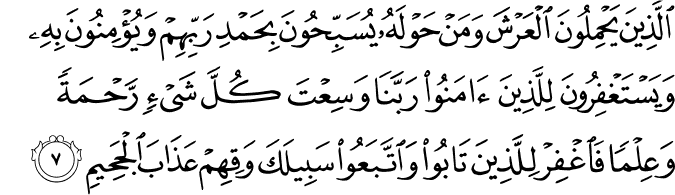 ٱلَّذِينَ يَحۡمِلُونَ ٱلۡعَرۡشَ وَمَنۡ حَوۡلَهُۥ يُسَبِّحُونَ بِحَمۡدِ رَبِّهِمۡ وَيُؤۡمِنُونَ بِهِۦ
وَيَسۡتَغۡفِرُونَ لِلَّذِينَ ءَامَنُواْ رَبَّنَا وَسِعۡتَ كُلَّ شَيۡءٖ رَّحۡمَةٗ
وَعِلۡمٗا فَٱغۡفِرۡ لِلَّذِينَ تَابُواْ وَٱتَّبَعُواْ سَبِيلَكَ وَقِهِمۡ عَذَابَ ٱلۡجَحِيمِ ٧